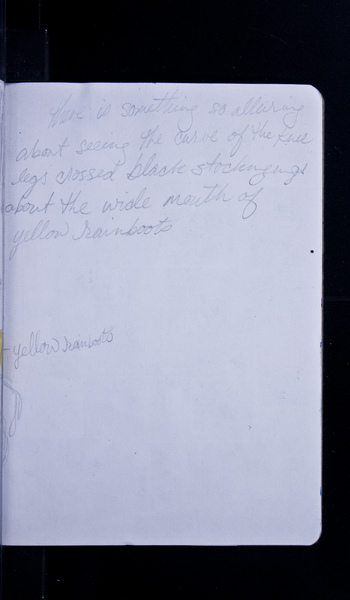 there is something so alluring
about seeing the curve of the knee
legs crossed black stockengings
about the wide mouth of
yellow rainboots
- yellow rainboots